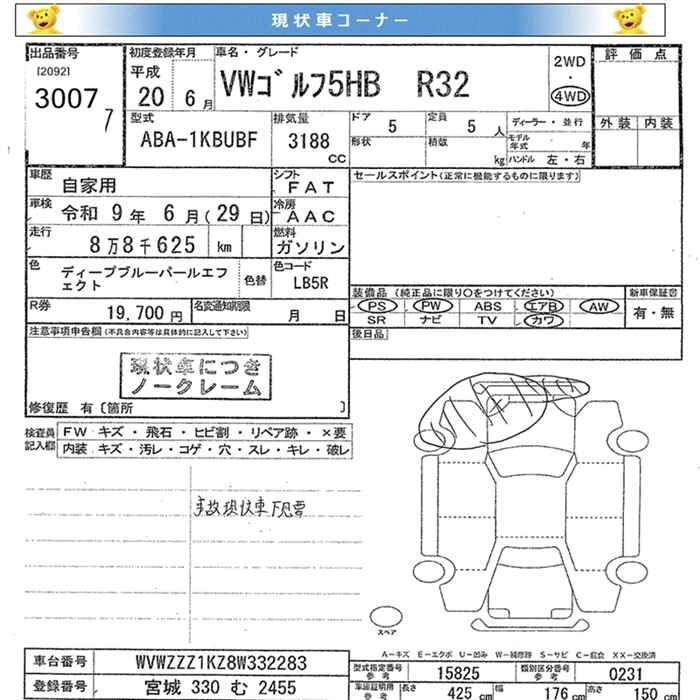 現状車コーナー
出品番号
[2092]
3007
7
初度登録年月
平成
20 6月
車名・グレード
VWゴルフ5HB R32
2WD
・
4WD
評価点
外装 内装
型式
ABA-1KBUBF
排気量
3188
CC
ドア
5
定員
5 人
形状
積載
kg
ディーラー・並行
モデル年式 年
ハンドル 左・右
車歴
自家用
シフト
FAT
車検 令和 9年 6月(29日)
冷房
AAC
走行
8万8千625 km
燃料
ガソリン
色
ディープブルーパールエフェクト
色替
色コード
LB5R
R券
19,700円
名変通知期限
月 日
セールスポイント(正常に機能するものに限ります)
装備品 (純正品に限り〇をつけてください)
PS PW ABS エアB AW
SR ナビ TV カワ
新車保証書
有・無
後日品
注意事項申告欄(不具合内容等は具体的に記入して下さい)
現状車につき
ノークレーム
修復歴 有〔箇所 〕
検査員記入欄
FW キズ・飛石・ヒビ割・リペア跡・×要
内装 キズ・汚レ・コゲ・穴・スレ・キレ・破レ
事故現状車下見要
スペア
A-キズ E-エクボ U-凹み W-補修跡 S-サビ C-腐食 XX-交換済
車台番号 WVWZZZ1KZ8W332283
登録番号 宮城 330 む 2455
型式指定番号 参考 15825
類別区分番号 参考 0231
車庫証明用 参考
長さ 425 cm
幅 176 cm
高さ 150 cm